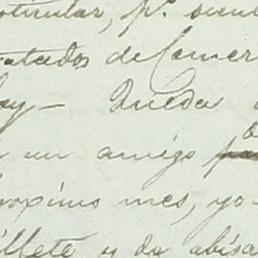 oticular, pr. sien
atados de Comer
hoy — Queda
un amigo
róximo mes, yo
illete y da abisa